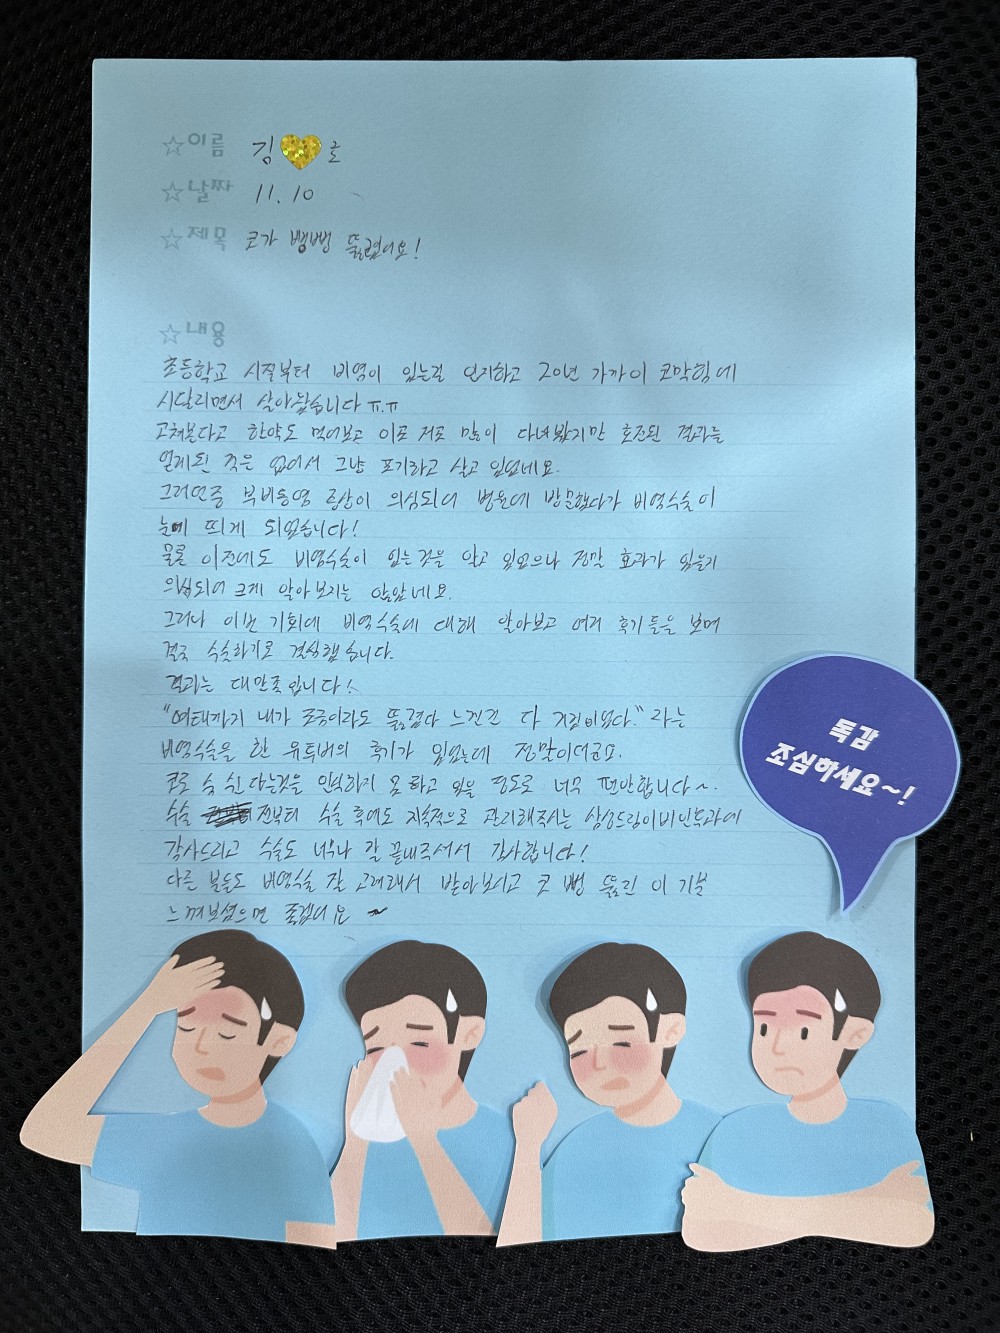 ☆이름 김 로
☆날짜 11.10
☆제목 코가 뻥뻥 뚫렸어요!
☆내용
초등학교 시절부터 비염이 있는걸 인지하고 20년 가까이 코막힘에
시달리면서 살아왔습니다 ㅠ.ㅠ
고쳐본다고 한약도 먹어보고 이곳 저곳 많이 다녀봤지만 호전된 결과는
얻게된 적은 없어서 그냥 포기하고 살고 있었네요.
그러던중 부비동염 증상이 의심되어 병원에 방문했다가 비염수술이
눈에 띄게 되었습니다!
물론 이전에도 비염수술이 있는것을 알고 있었으나 정말 효과가 있을지
의심되어 크게 알아보지는 않았네요.
그러나 이번 기회에 비염수술에 대해 알아보고 여러 후기들을 보며
결국 수술하기로 결심했습니다.
결과는 대만족입니다!
"여태까지 내가 조금이라도 뚫렸다 느낀건 다 거짓이었다." 라는
비염수술을 한 유투버의 후기가 있었는데 정말이더군요.
코로 숨 쉰다는것을 인식하지 못 하고 있을 정도로 너무 편안합니다~.
수술 전부터 수술 후에도 지속적으로 관리해주시는 삼성드림이비인후과에
감사드리고 수술도 너무나 잘 끝내주셔서 감사합니다!
다른 분들도 비염수술 잘 고려해서 받아보시고 코 뻥 뚫린 이 기분
느껴보셨으면 좋겠어요 ~
독감
조심하세요~!